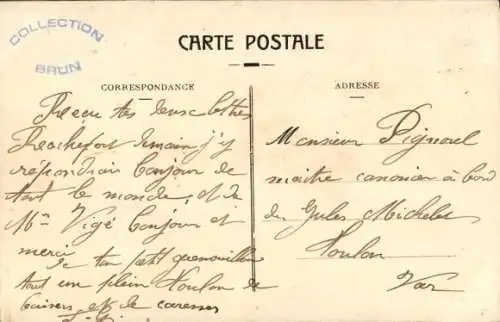 COLLECTION
BRUN
CARTE POSTALE
CORRESPONDANCE
Recu tes deux lettres
Rochefort demain j'y
répondrai bonjour de
tout le monde, et de
Mme Vigé bonjour et
merci
ton petit
tout un plein Toulon de
baisers et de caresses
ADRESSE
Monsieur Pignorel
maitre canonier à bord
du Jules Michelet
Toulon
Var